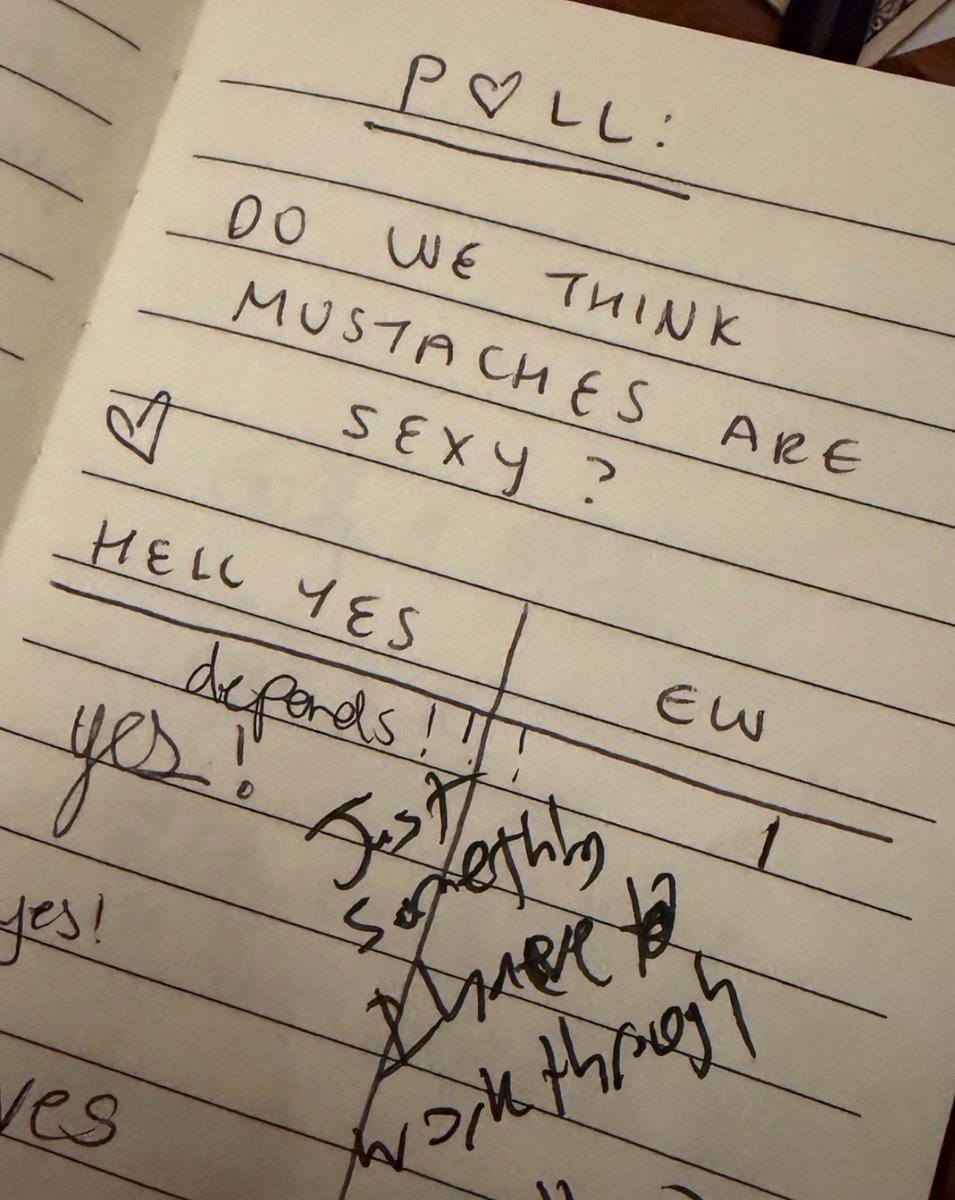 P♡LL:
DO WE THINK
MUSTACHES ARE
SEXY?
HELL YES
EW
depends!!!
yes!
1
Just
somethin
to
yes!
work through
yes